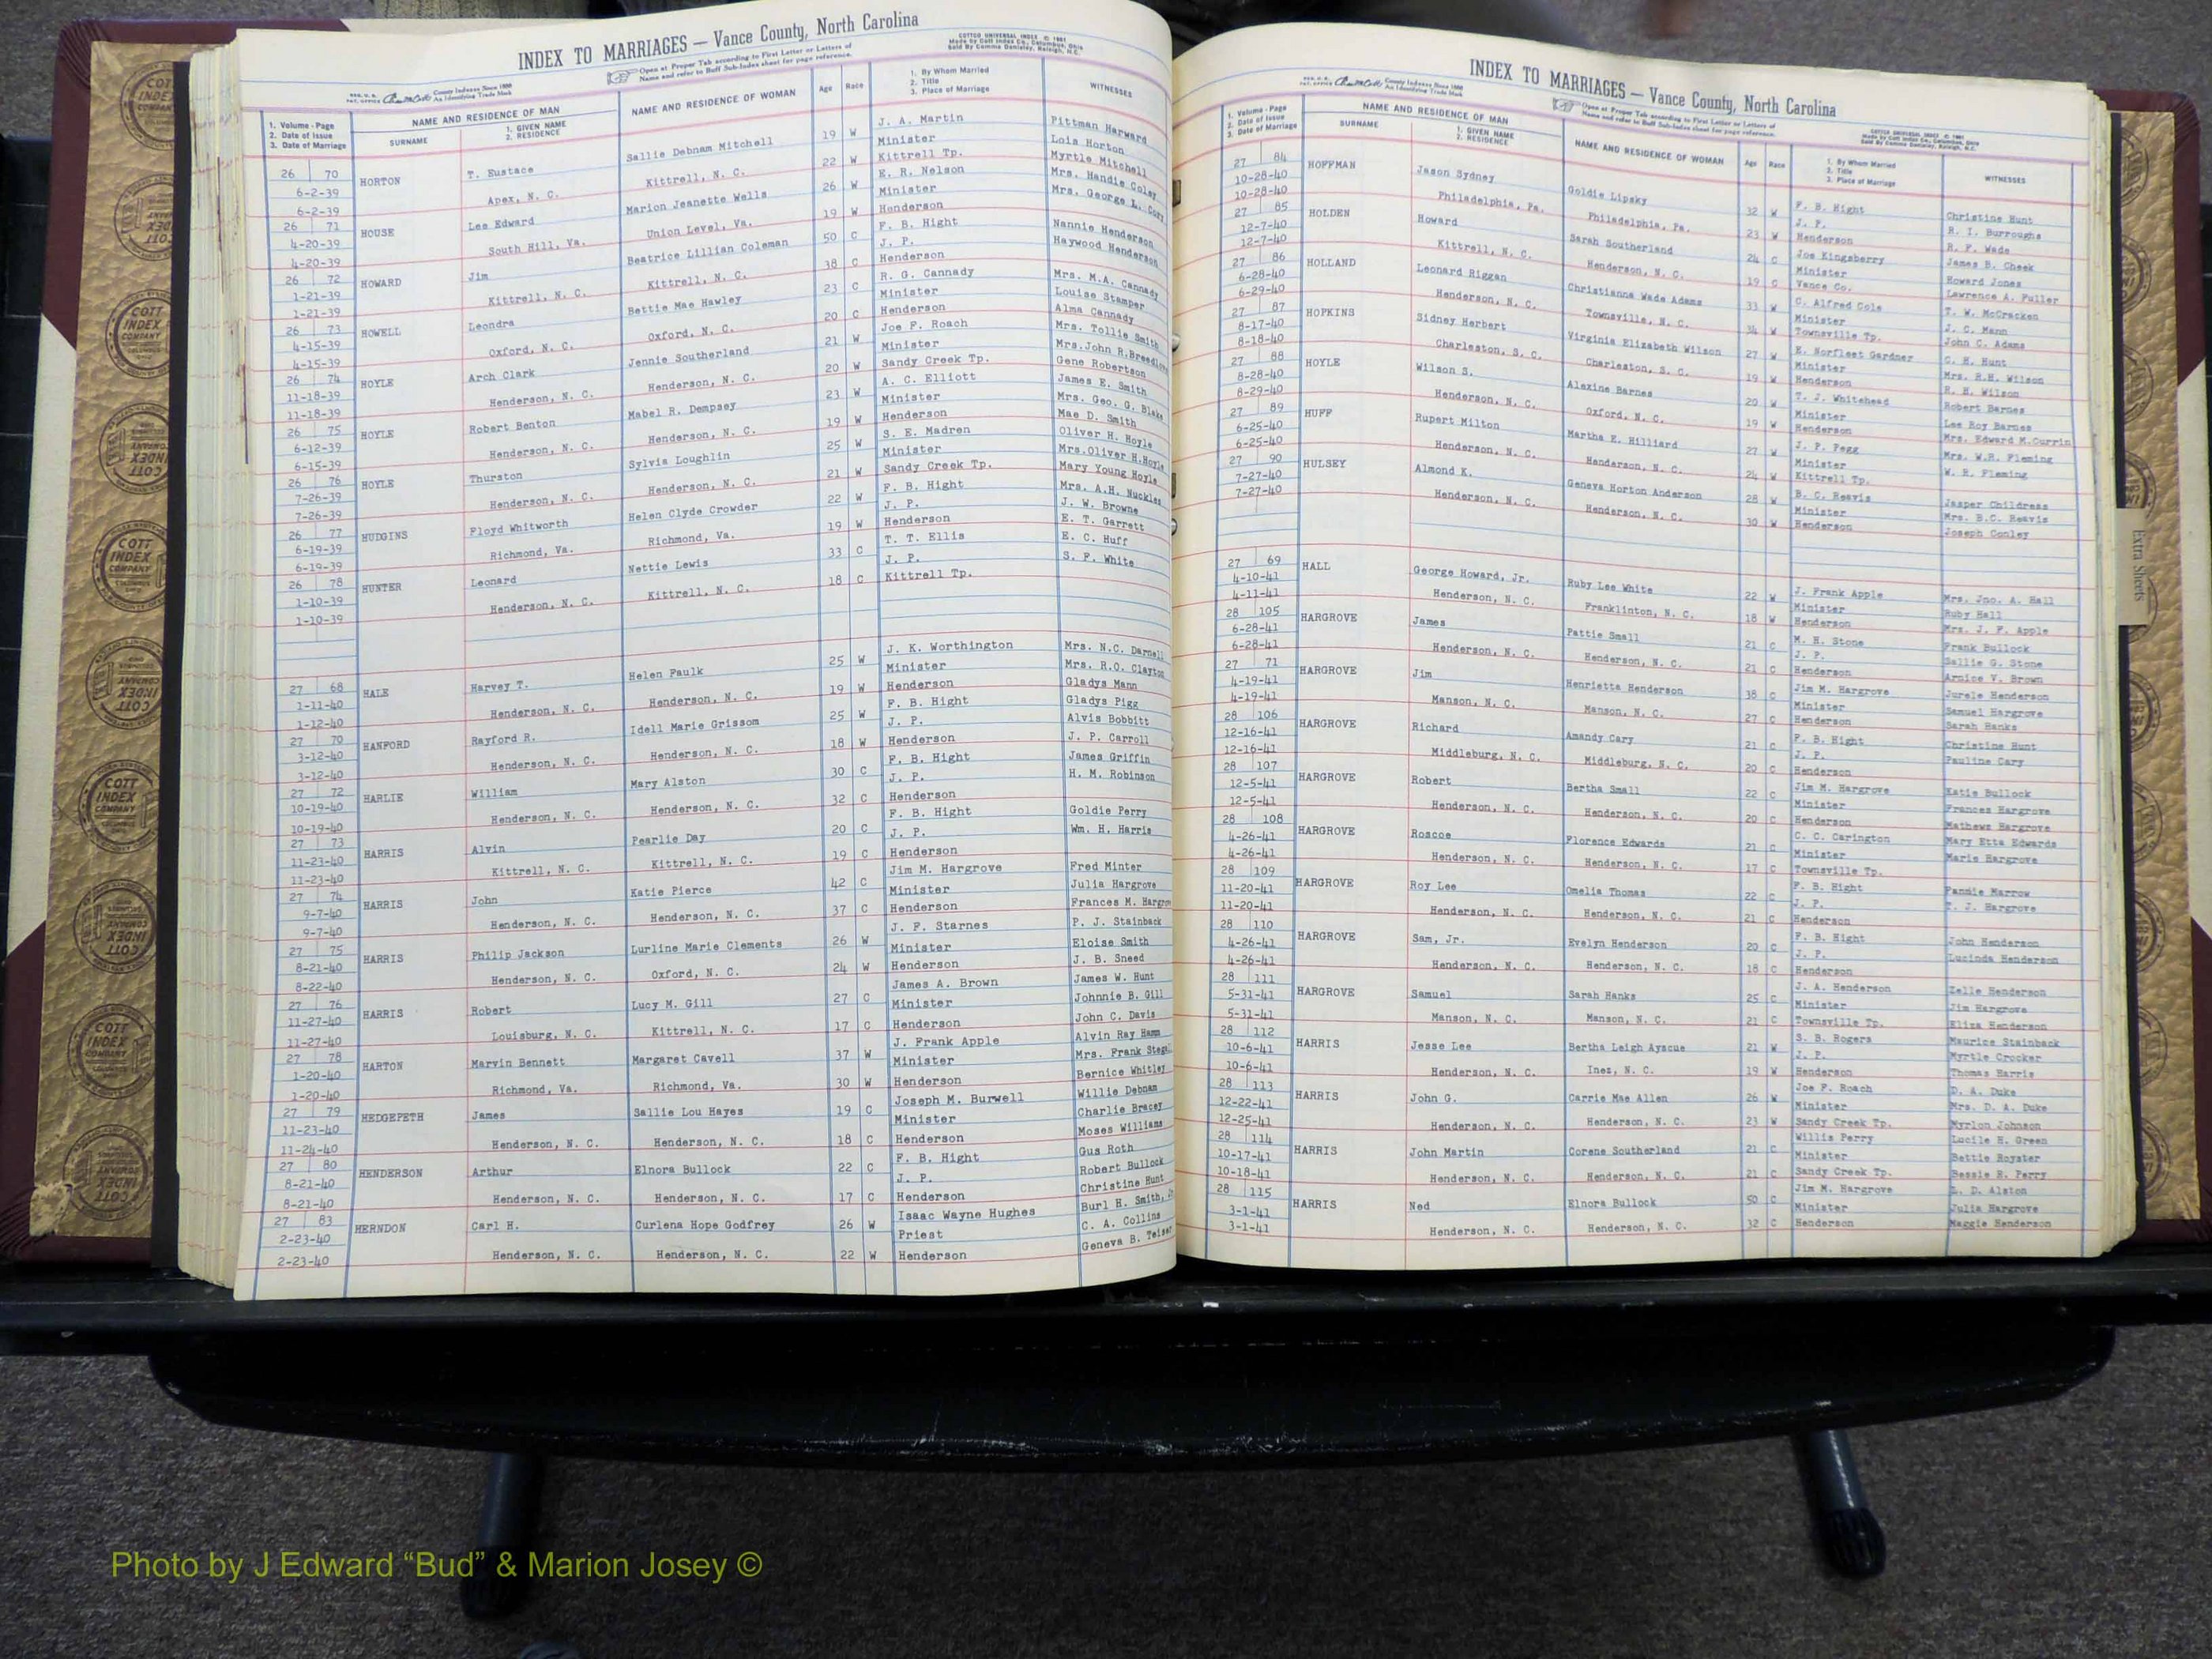 INDEX TO MARRIAGES — Vance County, North Carolina
Open at Proper Tab according to First Letter or Letters of
Name and refer to Buff Sub-Index sheet for page reference.
COTTCO UNIVERSAL INDEX © 1961
Made by Cott Index Co., Columbus, Ohio
County Indexes Since 1888
An Identifying Trade Mark
1. Volume - Page
2. Date of Issue
3. Date of Marriage
NAME AND RESIDENCE OF MAN
SURNAME
1. GIVEN NAME
2. RESIDENCE
NAME AND RESIDENCE OF WOMAN
Age Race
1. By Whom Married
2. Title
3. Place of Marriage
WITNESSES
26 70 HORTON T. Eustace Sallie Debnam Mitchell 19 W J. A. Martin Pittman Harward
6-2-39 Apex, N. C. Kittrell, N. C. 22 W Minister Lois Horton
6-2-39 Kittrell Tp. Myrtle Mitchell
26 71 HOUSE Lee Edward Marion Jeanette Wells 26 W E. R. Nelson Mrs. Handie Coley
4-20-39 South Hill, Va. Union Level, Va. 19 W Minister Mrs. George L.
4-20-39 Henderson
26 72 HOWARD Jim Beatrice Lillian Coleman 50 C F. B. Hight Nannie Henderson
1-21-39 Kittrell, N. C. Kittrell, N. C. 38 C J. P. Haywood Henderson
1-21-39 Henderson
26 73 HOWELL Leondra Bettie Mae Hawley 23 C R. G. Cannady Mrs. M.A. Cannady
4-15-39 Oxford, N. C. Oxford, N. C. 20 C Minister Louise Stamper
4-15-39 Henderson Alma Cannady
26 74 HOYLE Arch Clark Jennie Southerland 21 W Joe F. Roach Mrs. Tollie Smith
11-18-39 Henderson, N. C. Henderson, N. C. 20 W Minister Mrs.John R.
11-18-39 Sandy Creek Tp. Gene Robertson
26 75 HOYLE Robert Benton Mabel R. Dempsey 23 W A. C. Elliott James E. Smith
6-12-39 Henderson, N. C. Henderson, N. C. 19 W Minister Mrs. Geo. G. Blake
6-15-39 Henderson Mae D. Smith
26 76 HOYLE Thurston Sylvia Loughlin 25 W S. E. Madren Oliver H. Hoyle
7-26-39 Henderson, N. C. Henderson, N. C. 21 W Minister Mrs.Oliver H.Hoyle
7-26-39 Sandy Creek Tp. Mary Young Hoyle
26 77 HUDGINS Floyd Whitworth Helen Clyde Crowder 22 W F. B. Hight Mrs. A.H. Nuckles
6-19-39 Richmond, Va. Richmond, Va. 19 W J. P. J. W. Browne
6-19-39 Henderson E. T. Garrett
26 78 HUNTER Leonard Nettie Lewis 33 C T. T. Ellis E. C. Huff
1-10-39 Henderson, N. C. Kittrell, N. C. 18 C J. P. S. P. White
1-10-39 Kittrell Tp.
27 68 HALE Harvey T. Helen Faulk 25 W J. K. Worthington Mrs. N.C. Darnell
1-11-40 Henderson, N. C. Henderson, N. C. 19 W Minister Mrs. R.O. Clayton
1-12-40 Henderson Gladys Mann
27 70 HANFORD Rayford R. Idell Marie Grissom 25 W F. B. Hight Gladys Pigg
3-12-40 Henderson, N. C. Henderson, N. C. 18 W J. P. Alvis Bobbitt
3-12-40 Henderson J. P. Carroll
27 72 HARLIE William Mary Alston 30 C F. B. Hight James Griffin
10-19-40 Henderson, N. C. Henderson, N. C. 32 C J. P. H. M. Robinson
10-19-40 Henderson
27 73 HARRIS Alvin Pearlie Day 20 C F. B. Hight Goldie Perry
11-23-40 Kittrell, N. C. Kittrell, N. C. 19 C J. P. Wm. H. Harris
11-23-40 Henderson
27 74 HARRIS John Katie Pierce 42 C Jim M. Hargrove Fred Minter
9-7-40 Henderson, N. C. Henderson, N. C. 37 C Minister Julia Hargrove
9-7-40 Henderson Frances M.
27 75 HARRIS Philip Jackson Lurline Marie Clements 26 W J. F. Starnes P. J. Stainback
8-21-40 Henderson, N. C. Oxford, N. C. 24 W Minister Eloise Smith
8-22-40 Henderson J. B. Sneed
27 76 HARRIS Robert Lucy M. Gill 27 C James A. Brown James W. Hunt
11-27-40 Louisburg, N. C. Kittrell, N. C. 17 C Minister Johnnie B. Gill
11-27-40 Henderson John C. Davis
27 78 HARTON Marvin Bennett Margaret Cavell 37 W J. Frank Apple Alvin Ray Hamm
1-20-40 Richmond, Va. Richmond, Va. 30 W Minister Mrs. Frank
1-20-40 Henderson Bernice Whitley
27 79 HEDGEPETH James Sallie Lou Hayes 19 C Joseph M. Burwell Willie Debnam
11-23-40 Henderson, N. C. Henderson, N. C. 18 C Minister Charlie Bracey
11-24-40 Henderson Moses Williams
27 80 HENDERSON Arthur Elnora Bullock 22 C F. B. Hight Gus Roth
8-21-40 Henderson, N. C. Henderson, N. C. 17 C J. P. Robert Bullock
8-21-40 Henderson Christine Hunt
27 83 HERNDON Carl H. Curlena Hope Godfrey 26 W Isaac Wayne Hughes Burl H. Smith,
2-23-40 Henderson, N. C. Henderson, N. C. 22 W Priest C. A. Collins
2-23-40 Henderson Geneva B.
INDEX TO MARRIAGES — Vance County, North Carolina
County Indexes Since 1888
An Identifying Trade Mark
Open at Proper Tab according to First Letter or Letters of
Name and refer to Buff Sub-Index sheet for page reference.
1. Volume - Page
2. Date of Issue
3. Date of Marriage
NAME AND RESIDENCE OF MAN
SURNAME
1. GIVEN NAME
2. RESIDENCE
NAME AND RESIDENCE OF WOMAN
Age Race
1. By Whom Married
2. Title
3. Place of Marriage
WITNESSES
27 84 HOFFMAN Jason Sydney Goldie Lipsky 32 W F. B. Hight Christine Hunt
10-28-40 Philadelphia, Pa. Philadelphia, Pa. 23 W J. P. R. I. Burroughs
10-28-40 Henderson R. F. Wade
27 85 HOLDEN Howard Sarah Southerland 24 C Joe Kingsberry James B. Cheek
12-7-40 Kittrell, N. C. Henderson, N. C. 19 C Minister Howard Jones
12-7-40 Vance Co. Lawrence A. Fuller
27 86 HOLLAND Leonard Riggan Christianna Wade Adams 33 W C. Alfred Cole T. W. McCracken
6-28-40 Henderson, N. C. Townsville, N. C. 34 W Minister J. C. Mann
6-29-40 Townsville Tp. John C. Adams
27 87 HOPKINS Sidney Herbert Virginia Elizabeth Wilson 27 W E. Norfleet Gardner C. H. Hunt
8-17-40 Charleston, S. C. Charleston, S. C. 19 W Minister Mrs. R.H. Wilson
8-18-40 Henderson R. H. Wilson
27 88 HOYLE Wilson S. Alexine Barnes 20 W T. J. Whitehead Robert Barnes
8-28-40 Henderson, N. C. Oxford, N. C. 19 W Minister Lee Roy Barnes
8-29-40 Henderson Mrs. Edward M.Currin
27 89 HUFF Rupert Milton Martha E. Hilliard 27 W J. P. Pegg Mrs. W.R. Fleming
6-25-40 Henderson, N. C. Henderson, N. C. 24 W Minister W. R. Fleming
6-25-40 Kittrell Tp.
27 90 HULSEY Almond K. Geneva Horton Anderson 28 W B. C. Reavis Jasper Childress
7-27-40 Henderson, N. C. Henderson, N. C. 30 W Minister Mrs. B.C. Reavis
7-27-40 Henderson Joseph Conley
27 69 HALL George Howard, Jr. Ruby Lee White 22 W J. Frank Apple Mrs. Jno. A. Hall
4-10-41 Henderson, N. C. Franklinton, N. C. 18 W Minister Ruby Hall
4-11-41 Henderson Mrs. J. F. Apple
28 105 HARGROVE James Pattie Small 21 C M. H. Stone Frank Bullock
6-28-41 Henderson, N. C. Henderson, N. C. 21 C J. P. Sallie G. Stone
6-28-41 Henderson Arnice V. Brown
27 71 HARGROVE Jim Henrietta Henderson 38 C Jim M. Hargrove Jurele Henderson
4-19-41 Manson, N. C. Manson, N. C. 27 C Minister Samuel Hargrove
4-19-41 Henderson Sarah Hanks
28 106 HARGROVE Richard Amandy Cary 21 C F. B. Hight Christine Hunt
12-16-41 Middleburg, N. C. Middleburg, N. C. 20 C J. P. Pauline Cary
12-16-41 Henderson
28 107 HARGROVE Robert Bertha Small 22 C Jim M. Hargrove Katie Bullock
12-5-41 Henderson, N. C. Henderson, N. C. 20 C Minister Frances Hargrove
12-5-41 Henderson Mathews Hargrove
28 108 HARGROVE Roscoe Florence Edwards 21 C C. C. Carington Mary Etta Edwards
4-26-41 Henderson, N. C. Henderson, N. C. 17 C Minister Marie Hargrove
4-26-41 Townsville Tp.
28 109 HARGROVE Roy Lee Omelia Thomas 22 C F. B. Hight Fannie Marrow
11-20-41 Henderson, N. C. Henderson, N. C. 21 C J. P. T. J. Hargrove
11-20-41 Henderson
28 110 HARGROVE Sam, Jr. Evelyn Henderson 20 C F. B. Hight John Henderson
4-26-41 Henderson, N. C. Henderson, N. C. 18 C J. P. Lucinda Henderson
4-26-41 Henderson
28 111 HARGROVE Samuel Sarah Hanks 25 C J. A. Henderson Zelle Henderson
5-31-41 Manson, N. C. Manson, N. C. 21 C Minister Jim Hargrove
5-31-41 Townsville Tp. Eliza Henderson
28 112 HARRIS Jesse Lee Bertha Leigh Ayscue 21 W S. B. Rogers Maurice Stainback
10-6-41 Henderson, N. C. Inez, N. C. 19 W J. P. Myrtle Crocker
10-6-41 Henderson Thomas Harris
28 113 HARRIS John G. Carrie Mae Allen 26 W Joe F. Roach D. A. Duke
12-22-41 Henderson, N. C. Henderson, N. C. 23 W Minister Mrs. D. A. Duke
12-25-41 Sandy Creek Tp. Myrlon Johnson
28 114 HARRIS John Martin Corene Southerland 21 C Willis Perry Lucile H. Green
10-17-41 Henderson, N. C. Henderson, N. C. 21 C Minister Bettie Royster
10-18-41 Sandy Creek Tp. Bessie E. Perry
28 115 HARRIS Ned Elnora Bullock 50 C Jim M. Hargrove L. D. Alston
3-1-41 Henderson, N. C. Henderson, N. C. 32 C Minister Julia Hargrove
3-1-41 Henderson Maggie Henderson
Extra Sheets
COTT INDEX COMPANY
Photo by J Edward “Bud” & Marion Josey ©